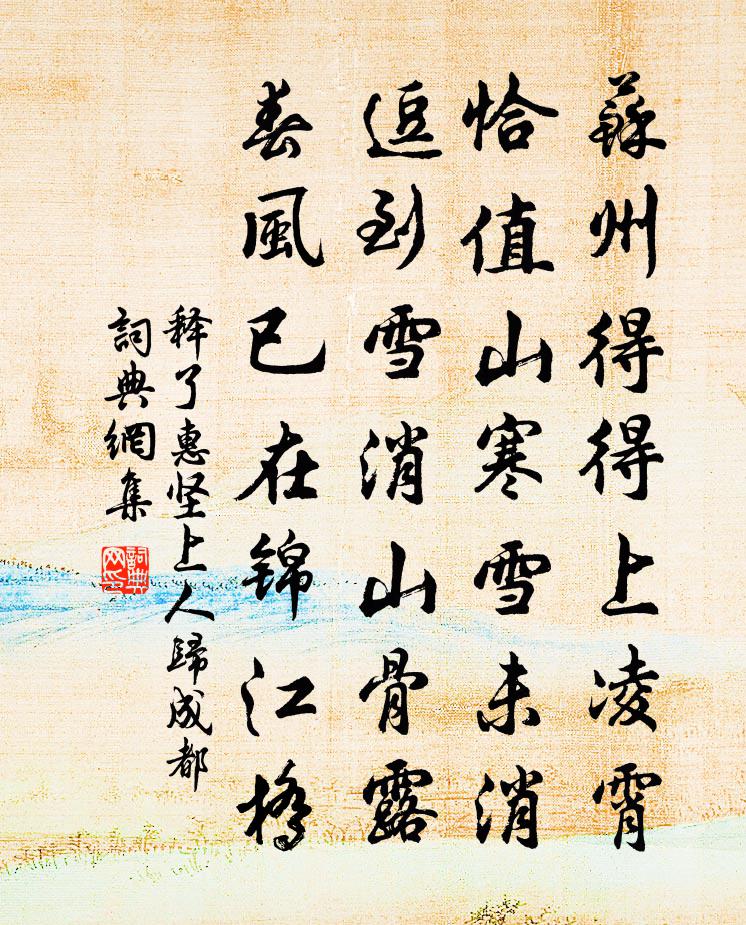 蘇州得得上凌霄
恰值山寒雪未消
逗到雪消山骨露
春風已在錦江橋
释了惠坚上人歸成都
詞典網集
詞典網印